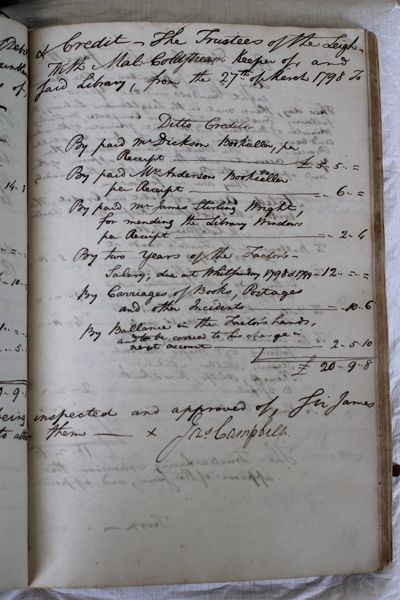 & Credit – The Trustees of the Leigh-
With Mal: Coldstream Keeper of, and
said Library, from the 27th of March 1798 To
Ditto Creditor
By paid Mr Dickson Bookseller, per
Receipt — £ 3.. 5.. =
By paid Mr Anderson Bookseller
per Receipt — .. 6.. =
By paid Mr James Stirling Wright,
for mending the Library Windows
per Receipt — .. 2.. 6
By two Years of the Factor's
Salary, due at Whitsunday 1798 & 1799 – 12.. = .. =
By Carriages of Books, Postages
and other Incidents — .. 10.. 6
By Ballance in the Factor's hands,
and to be carried to his charge in
next account — 2.. 5.. 10
£ 20.. 9.. 8
being inspected and approved of, Sir James
them — × Jas Campbell.